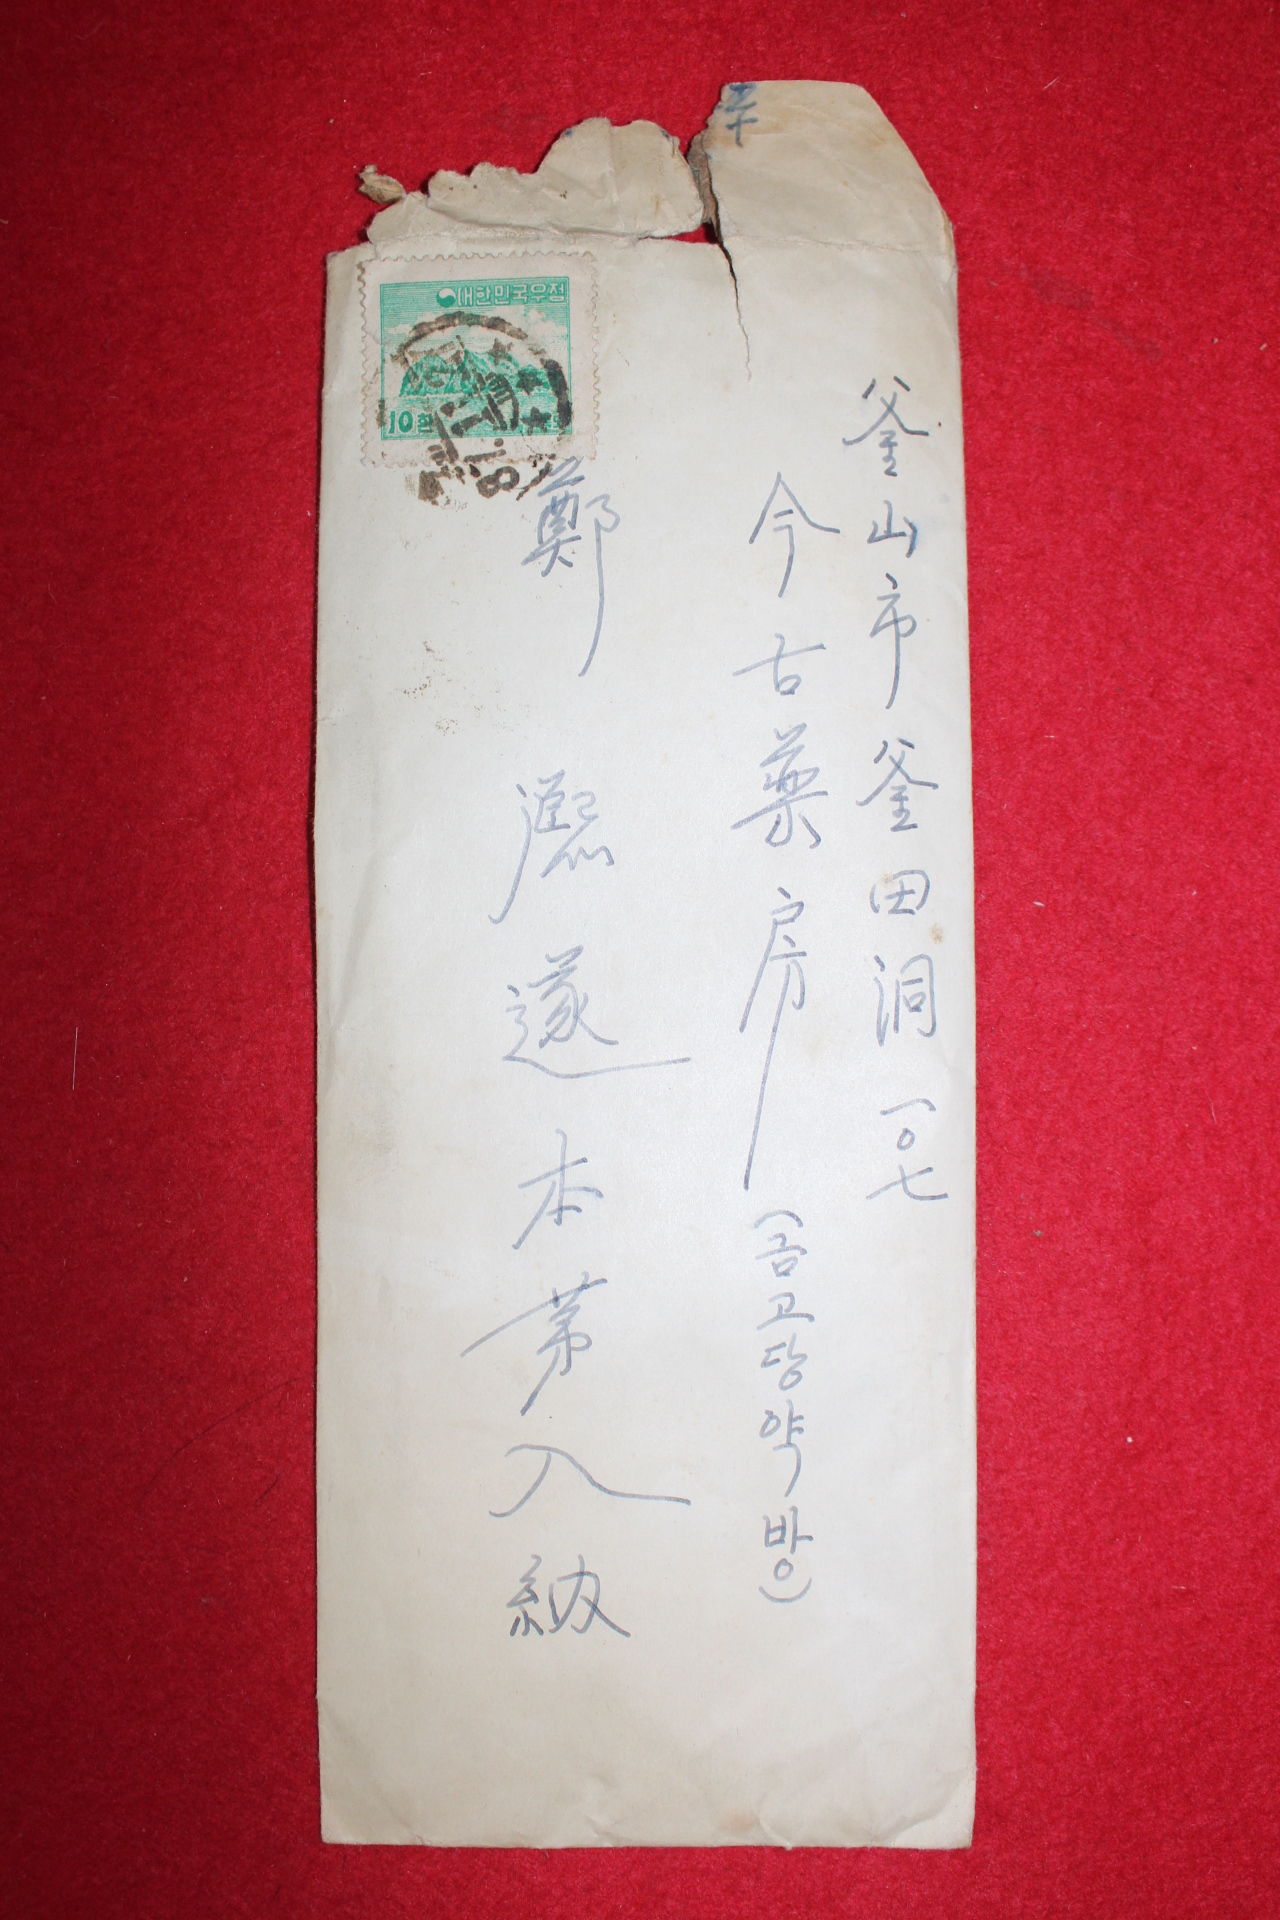 釜山市釜田洞 一〇七
今古薬房 (금고당약방)
鄭 熙遂 本第入納
대한민국우정
10환